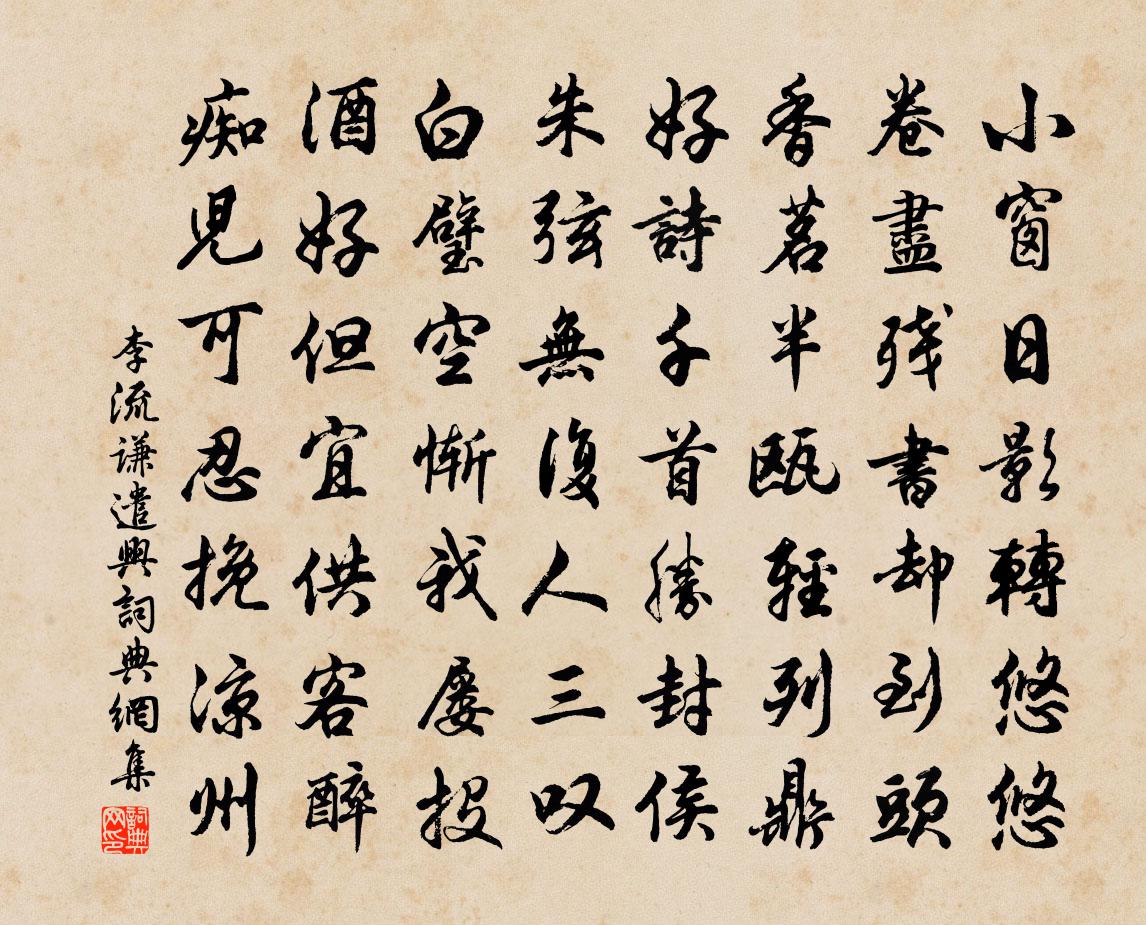 小窗日影轉悠悠
卷盡殘書却到頭
香茗半甌輕列鼎
好詩千首勝封侯
朱弦無復人三叹
白璧空慚我屡投
酒好但宜供客醉
痴児可忍挽凉州
李流谦遣興詞典網集
詞典網印